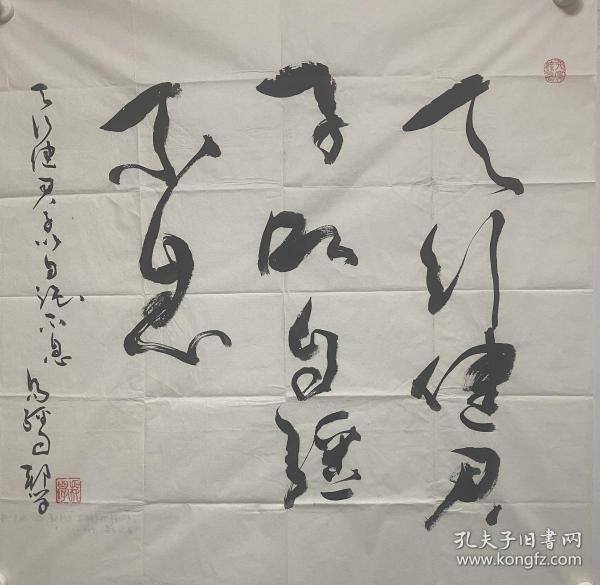 天行健君
子以自强
不息
天行健君子以自强不息
孔夫子旧书网
www.kongfz.com